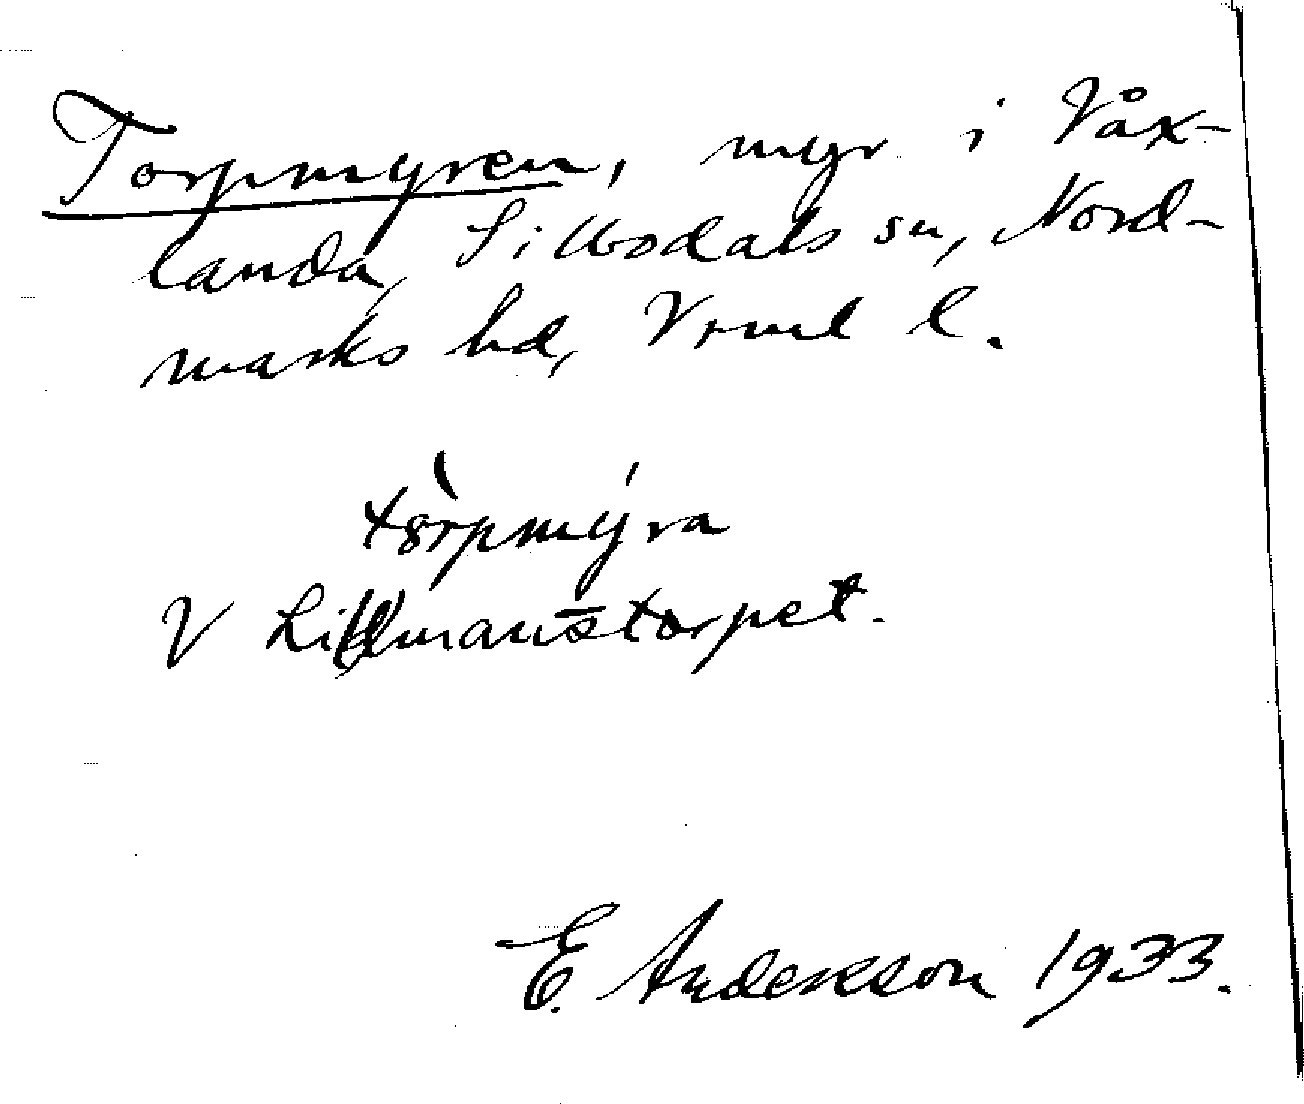 Torpmyren, myr i Våx-
landa, Sillbodals sn, Nord-
marks hd, Vrml l.
tòrpmýra
V Lillmanstorpet.
E. Anderson 1933.